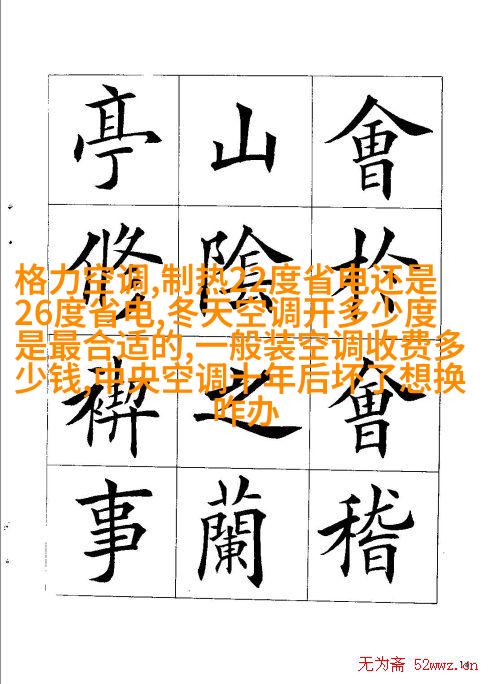 會於會稽
山陰之蘭
亭脩禊事
格力空调,制热22度省电还是
26度省电,冬天空调开多少度
是最合适的,一般装空调收费多
少钱,中央空调十年后坏了想换
咋办
无为斋 52wwz.cn